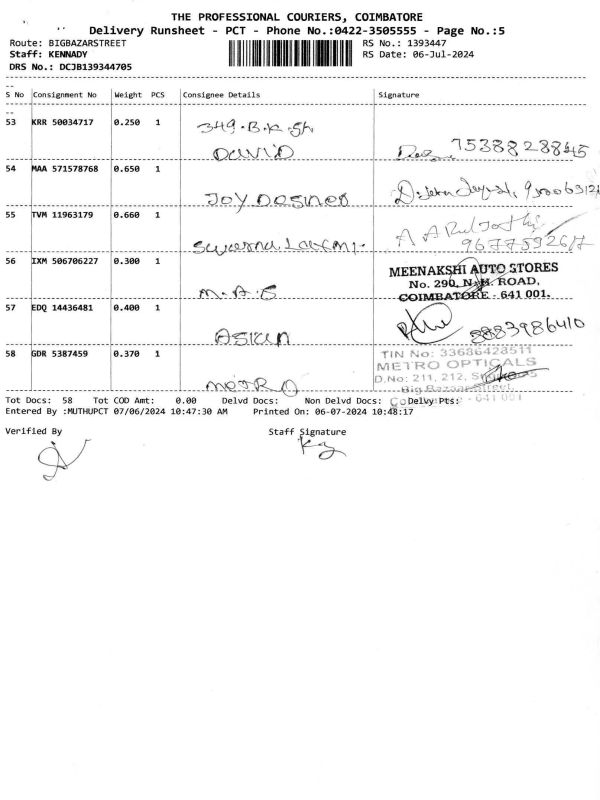 THE PROFESSIONAL COURIERS, COIMBATORE
Delivery Runsheet - PCT - Phone No.:0422-3505555 - Page No.:5
Route: BIGBAZARSTREET RS No.: 1393447
Staff: KENNADY RS Date: 06-Jul-2024
DRS No.: DCJB139344705
S No Consignment No Weight PCS Consignee Details Signature
53 KRR 50034717 0.250 1 349.B.K.St.
DAVID
54 MAA 571578768 0.650 1
JOY DESINES
55 TVM 11963179 0.660 1
56 IXM 506706227 0.300 1 MEENAKSHI AUTO STORES
No. 290, N.H. ROAD,
COIMBATORE - 641 001.
M.A.S
57 EDQ 14436481 0.400 1
ASIAN 8883986410
58 GDR 5387459 0.370 1 TIN No: 33686428511
METRO OPTICALS
D.No: 211, 212,
METRO Big Bazaar Street,
Tot Docs: 58 Tot COD Amt: 0.00 Delvd Docs: Non Delvd Docs: Delvy Pts:
641 001
Entered By :MUTHUPCT 07/06/2024 10:47:30 AM Printed On: 06-07-2024 10:48:17
Verified By Staff Signature